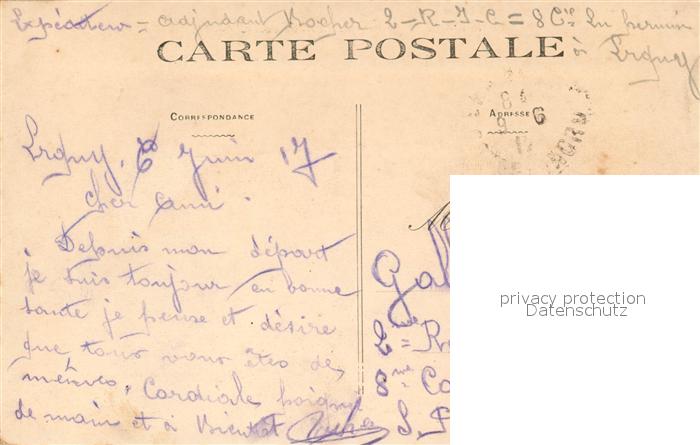 Expéditeur = adjudant Rocher 2-R-I-C = 8 Cie
CARTE POSTALE
à
CORRESPONDANCE
ADRESSE
6
Ergny, 6 Juin 17
cher ami.
Depuis mon départ
je suis toujour en bonne
sante je pense et désire
que tous vous êtes de
mêmes, Cordiale poigné
de main et à Bientot
Gal
2me R
8me Co
S. P
privacy protection
Datenschutz